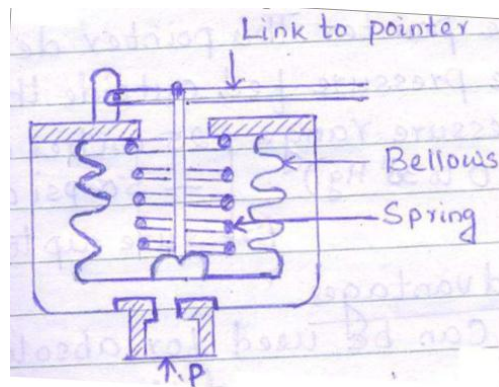 Link to pointer
Bellows
Spring
P